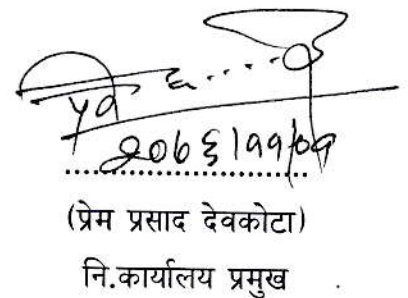 २०७६।११।०१
(प्रेम प्रसाद देवकोटा)
नि.कार्यालय प्रमुख